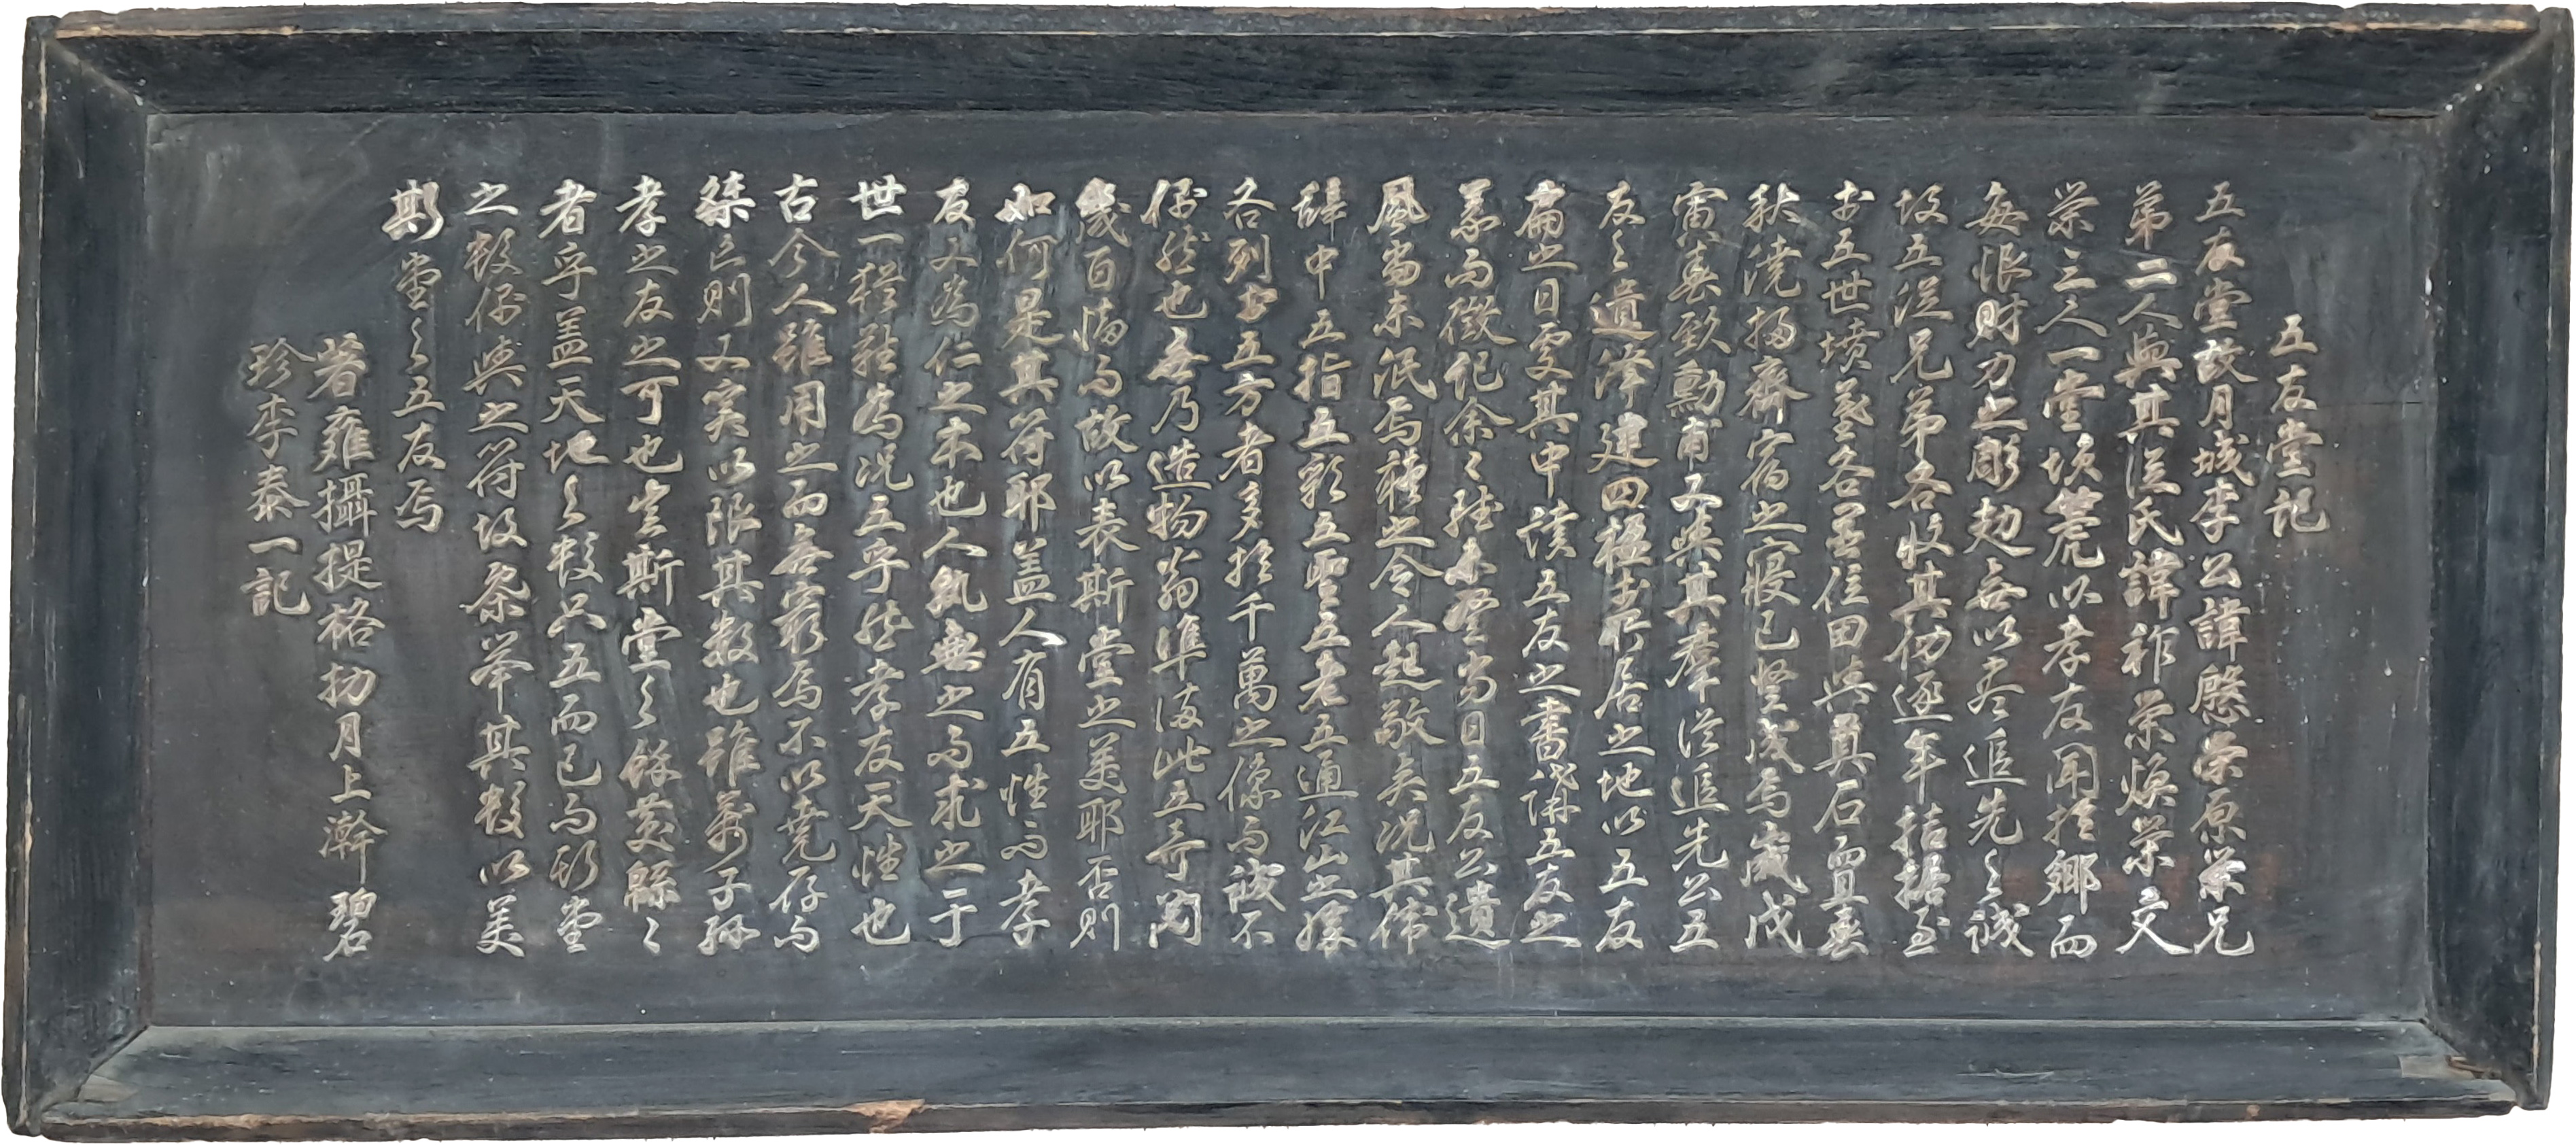 五友堂記
五友堂故月城李公諱慇榮原榮兄
弟二人與其從氏諱祚榮煥榮文
榮三人一堂塤篪以孝友聞於鄉而
每恨財力之彫劫無以尽追先之誠
故五從兄弟各收其彷逐年拮据至
于五世墳菴各置位田與具石買
秋澆掃齋宿之寢已竪成焉歲戊
寅春勳甫又與其羣從追先公五
友之遺澤建四楹於所居之地以五友
扁之日处其中讀五友之書講五友之
而徵記余之當日五友公遺
風尚未泯焉種之令人起敬矣况其
辭中五指五彩五聖五老五通江山之勝
各列于五方者多於千萬之像而誠不
偶然也無乃造物翁準備此五奇閱
幾百歲而故以表斯堂之美耶否則
如何是其符耶盖人有五性而孝
友又為仁之本也人孰無之而求之于
世一猶難焉况五乎然孝友天性也
古今人雖用之而無窮焉不以堯存而
桀亡則又寧以限其數也雖萬子孫
孝之友之可也豈斯堂之餘黃緜緜
者乎盖天地之數只五而已而斯堂
之數偶與之符故備举其數以美
斯堂之五友焉
著雍攝提格扐月上澣碧
珍李泰一記